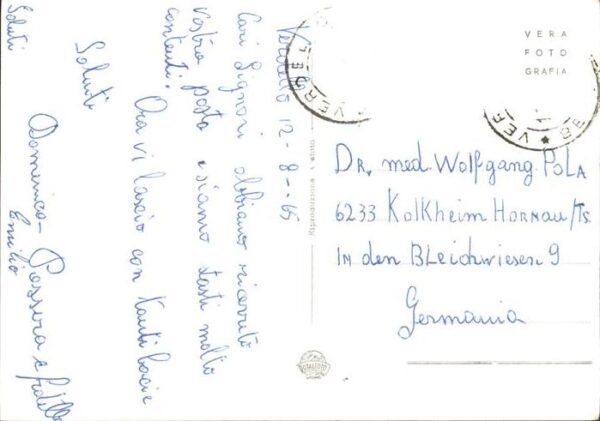 Verdello 12-8-65
Cari Signori abbiamo ricevuto
vostra posta e siamo stati molto
contenti.
Ora vi lascio con tanti bacie
Saluti
Domenico
Emilio
Saluti
VERA
FOTO
GRAFIA
VERDEL
VER
Riproduzione vietata
DR. med. Wolfgang POLA
6233 Kolkheim HORNAU/TS
IN den BLeichwiesen 9
Germania